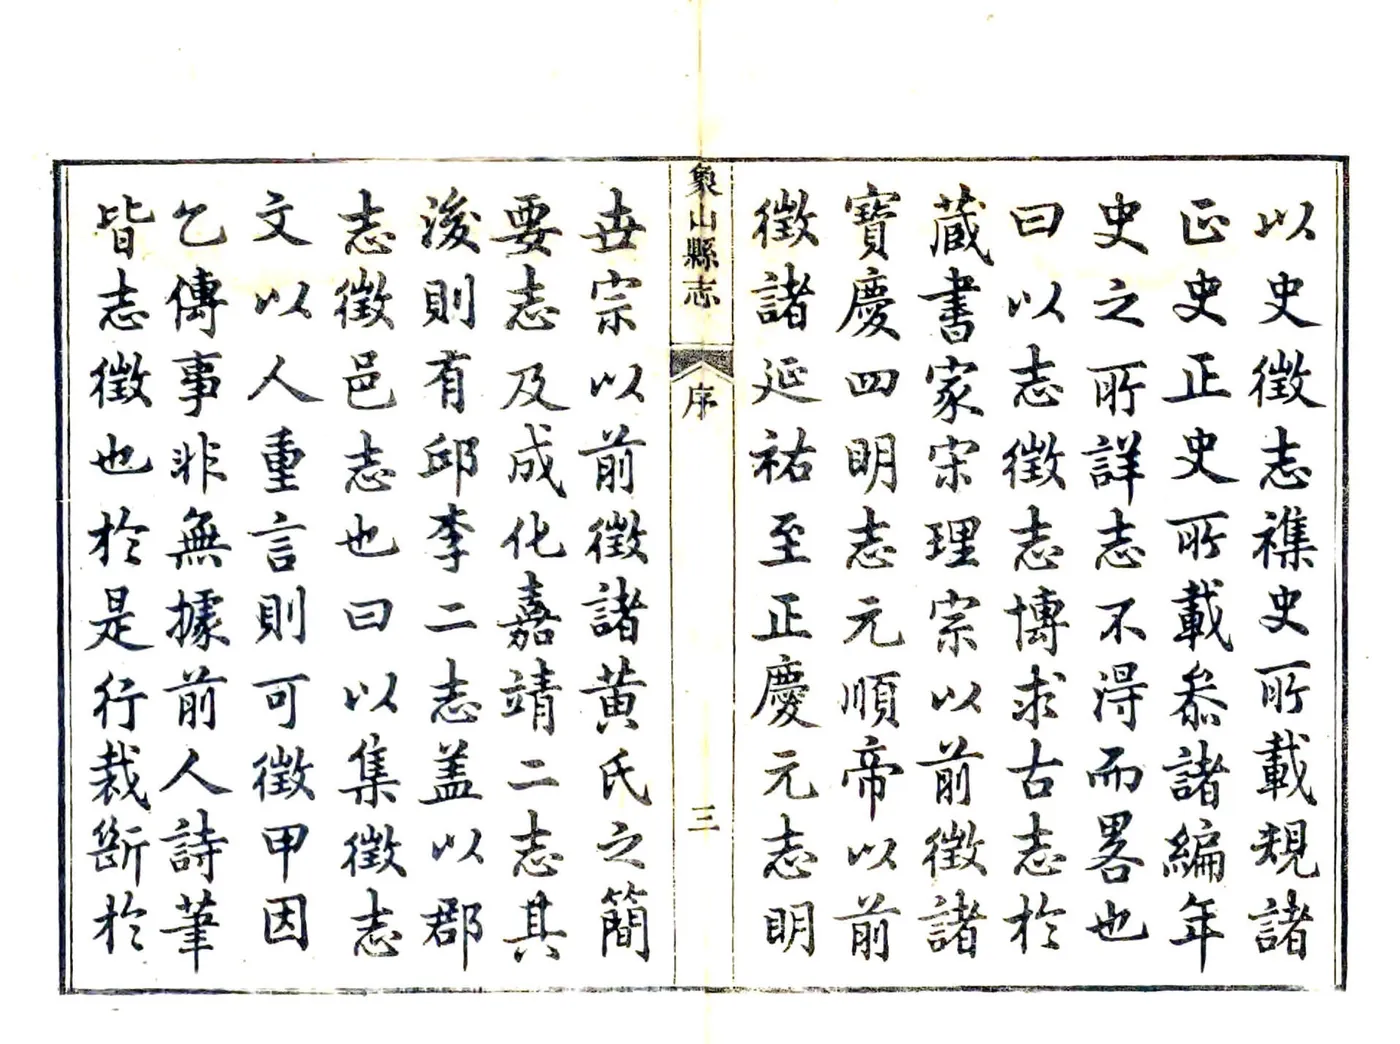 以史徵志襍史所載規諸
正史正史所載叅諸編年
史之所詳志不得而畧也
曰以志徵志博求古志於
藏書家宋理宗以前徵諸
寶慶四明志元順帝以前
徵諸延祐至正慶元志明
象山縣志
序
三
世宗以前徵諸黄氏之簡
要志及成化嘉靖二志其
後則有邱李二志盖以郡
志徵邑志也曰以集徵志
文以人重言則可徵甲因
乙傳事非無據前人詩筆
皆志徵也於是行裁斷於